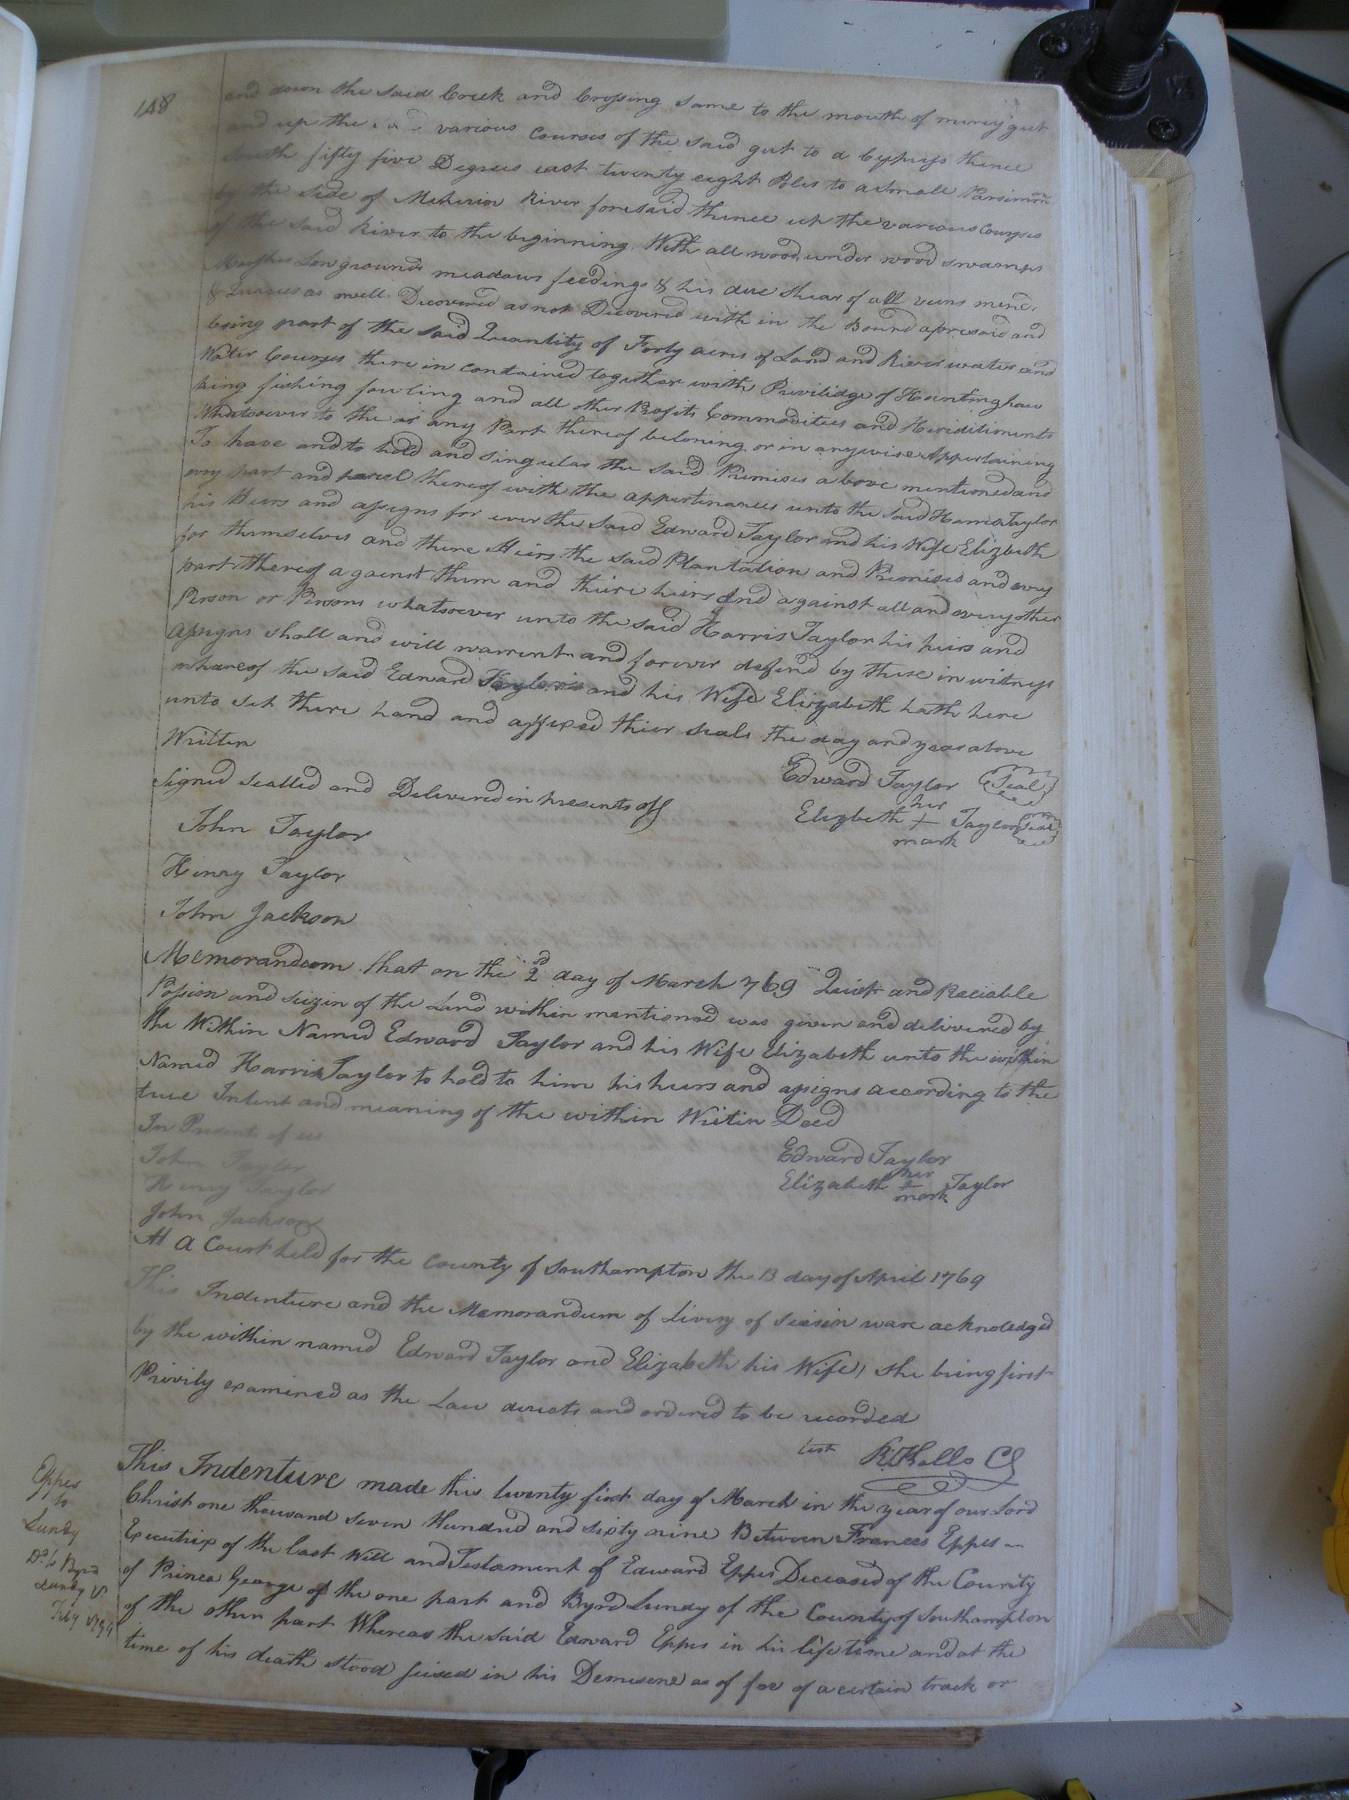 148
and down the said Creek and Crossing same to the mouth of mircy gut
and up the various Courses of the said gut to a Cypress thence
South fifty five Degrees east twenty eight Poles to a small Parsimon
by the side of Meherion River foresaid thence up the various Courses
of the said River to the beginning With all wood under wood swamps
Marshes Low grounds meadows feedings & his due shear of all veins mind.
& Quaries as well Discovered as not Discovered with in the Bound aforesaid and
being part of the said Quantity of Forty acres of Land and River waters and
Water Courses there in contained together with Privilidge of Hunting haw
king fishing fowling and all other Profits Commodities and Heriditiments
Whatsoever to the or any Part thereof beloning or in anywise Appertaining
To have and to hold and singular the said Premises above mentioned and
every part and parcel thereof with the appertinances unto the said Harris Taylor
his Heirs and assigns for ever the said Edward Taylor and his Wife Elizbeth
for themselves and there Heirs the said Plantation and Premises and every
part thereof against them and theire heirs And against all and every other
Person or Persons whatsoever unto the said Harris Taylor his heirs and
assigns shall and will warrent and forever defend by these in witness
whareof the said Edward Taylor and his Wife Elizabeth hath here
unto set there hand and affixed thier seals the day and year above
Written
Edward Taylor Seal
Signed sealled and Delivered in presents off
her
Elizbeth + Taylor Seal
mark
John Taylor
Henry Taylor
John Jackson
Memorandom that on the 2d day of March 769 Quiet and Paciable
Possion and siezin of the Land within mentioned was given and delivered by
the Within Named Edward Taylor and his Wife Elizabeth unto the within
Named Harris Taylor to hold to him his heirs and assigns according to the
true Intent and meaning of the within Written Deed
In Presents of us
Edward Taylor
John Taylor
her
Elizabeth + Taylor
mark
Henry Taylor
John Jackson
At a Court held for the County of Southampton the 13 day of April 1769
This Indenture and the Memorandum of Livery of Seisin ware acknoledged
by the within named Edward Taylor and Elizabeth his Wife, she being first
Privily examined as the Law directs and ordered to be recorded
test R. Kello CC
Eppes
to
Lundy
This Indenture made this twenty first day of March in the year of our Lord
Christ one thousand seven Hundred and sixty nine Between Frances Eppes
Executrix of the last Will and Testament of Edward Eppes Deceased of the County
of Prince George of the one part and Byrd Lundy of the County of Southampton
of the other part Whereas the said Edward Eppes in his life time and at the
time of his death stood seised in his Demesene as of fee of a certain track or